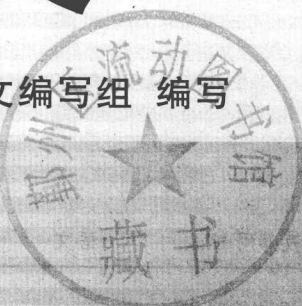 文编写组 编写
鄞州区流动图书馆
藏书